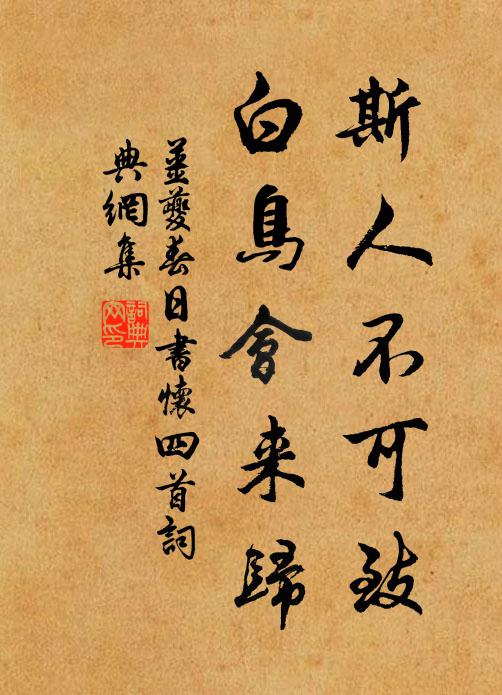 斯人不可致
白鳥會来歸
姜夔春日書懷四首詞
典網集
詞典網印